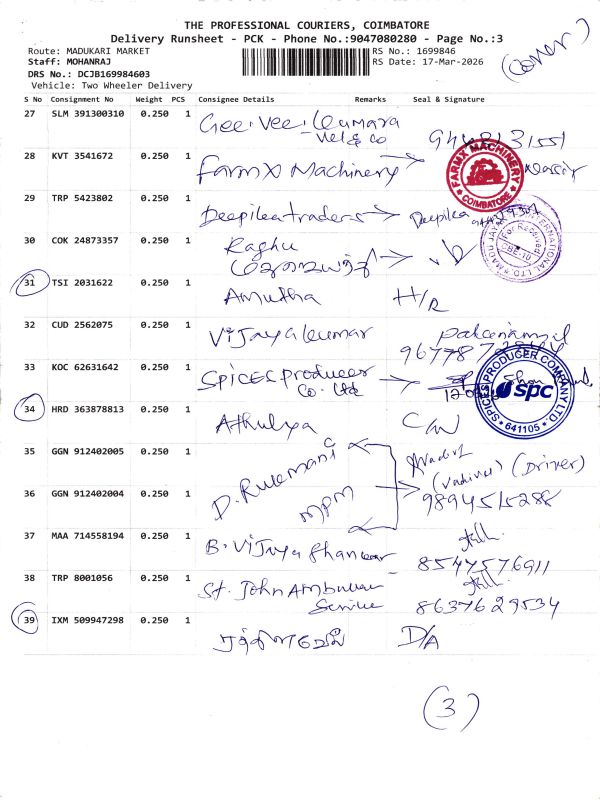 THE PROFESSIONAL COURIERS, COIMBATORE
Delivery Runsheet - PCK - Phone No.:9047080280 - Page No.:3
(cover)
Route: MADUKARI MARKET
RS No.: 1699846
Staff: MOHANRAJ
RS Date: 17-Mar-2026
DRS No.: DCJB169984603
Vehicle: Two Wheeler Delivery
S No Consignment No Weight PCS Consignee Details Remarks Seal & Signature
27 SLM 391300310 0.250 1 Gee. Vee. Kumara
Vel & co
28 KVT 3541672 0.250 1 FarmX Machinery
FARMX MACHINERY
COIMBATORE
29 TRP 5423802 0.250 1 Deepikatraders Deepika
30 COK 24873357 0.250 1 Raghu
For Received
CBE-10
31 TSI 2031622 0.250 1 Amutha H/R
32 CUD 2562075 0.250 1 Vijayakumar
33 KOC 62631642 0.250 1 Spices producer
Co. Ltd
SPICES PRODUCER COMPANY LTD.
spc
641105
34 HRD 363878813 0.250 1 Athulya C/W
35 GGN 912402005 0.250 1 D. Rukmani
(Vadivel) (Driver)
36 GGN 912402004 0.250 1 MPM 9894515288
37 MAA 714558194 0.250 1 B. Vijaya Shankar
8547576911
38 TRP 8001056 0.250 1 St. John Ambulan
Service 8637629534
39 IXM 509947298 0.250 1 D/A
(3)